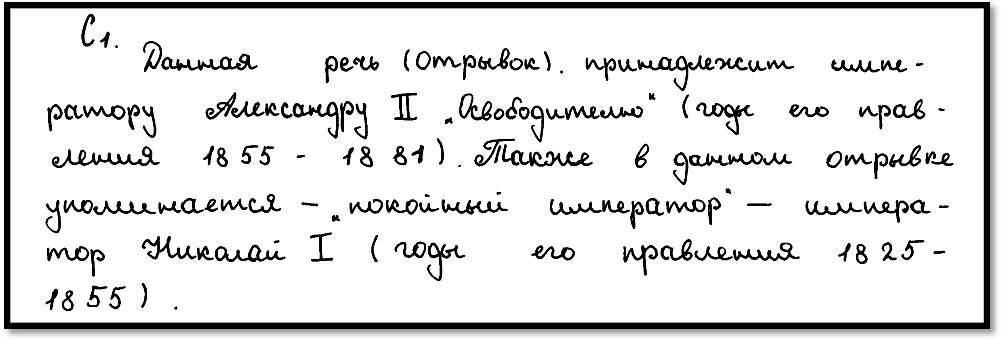 С1.
Данная речь (отрывок). принадлежит импе-
ратору Александру II „Освободителю“ (годы его прав-
ления 1855 - 1881). Также в данном отрывке
упоминается – „покойный император“ – импера-
тор Николай I (годы его правления 1825-
1855).